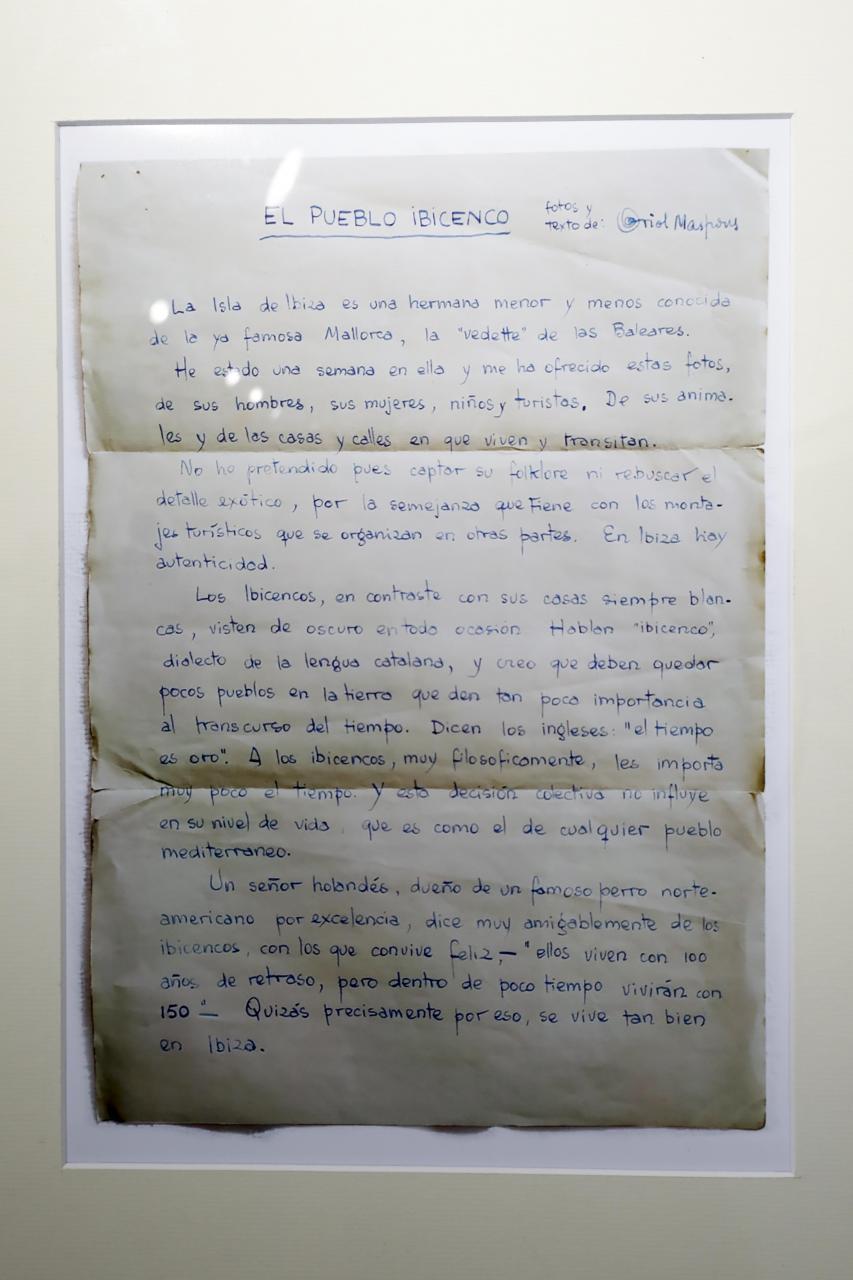 EL PUEBLO IBICENCO
fotos y
texto de: Oriol Maspons
La Isla de Ibiza es una hermana menor y menos conocida
de la ya famosa Mallorca, la "vedette" de las Baleares.
He estado una semana en ella y me ha ofrecido estas fotos,
de sus hombres, sus mujeres, niños y turistas. De sus anima-
les y de las casas y calles en que viven y transitan.
No he pretendido pues captar su folklore ni rebuscar el
detalle exótico, por la semejanza que tiene con los monta-
jes turísticos que se organizan en otras partes. En Ibiza hay
autenticidad.
Los Ibicencos, en contraste con sus casas siempre blan-
cas, visten de oscuro en toda ocasión Hablan "ibicenco",
dialecto de la lengua catalana, y creo que deben quedar
pocos pueblos en la tierra que den tan poca importancia
al transcurso del tiempo. Dicen los ingleses: "el tiempo
es oro". A los ibicencos, muy filosoficamente, les importa
muy poco el tiempo. Y esta decisión colectiva no influye
en su nivel de vida, que es como el de cualquier pueblo
mediterraneo.
Un señor holandés, dueño de un famoso perro norte-
americano por excelencia, dice muy amigablemente de los
ibicencos, con los que convive feliz,- "ellos viven con 100
años de retraso, pero dentro de poco tiempo vivirán con
150"- Quizás precisamente por eso, se vive tan bien
en Ibiza.